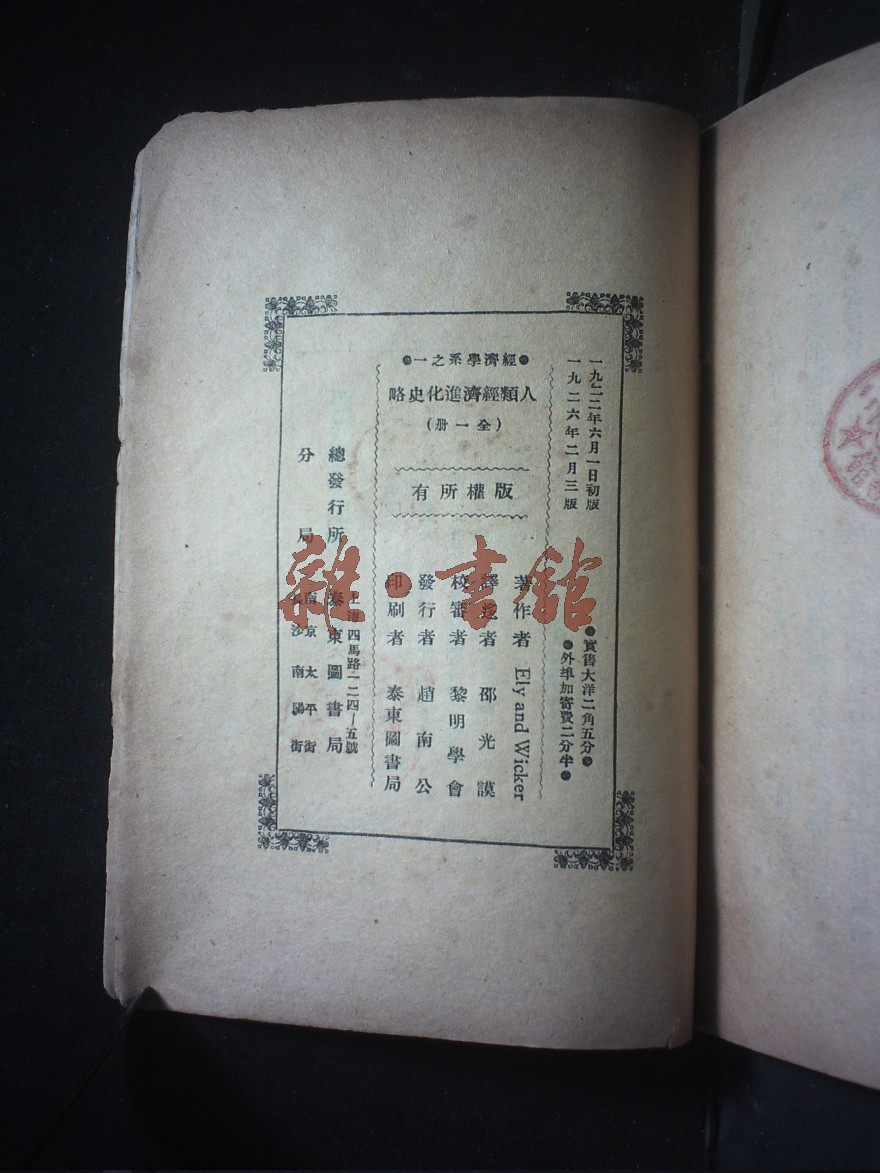 一九二二年六月一日初版
一九二六年二月三版
●實售大洋二角五分●
●外埠加寄費二分半●
●經濟學系之一●
人類經濟進化史略
(全一册)
版權所有
著作者 Ely and Wicker
譯述者 邵光謨
校審者 黎明學會
發行者 趙南公
印刷者 泰東圖書局
上海四馬路一二四—五號
總發行所 泰東圖書局
分局 南京太平街
長沙南陽街
雜·書館